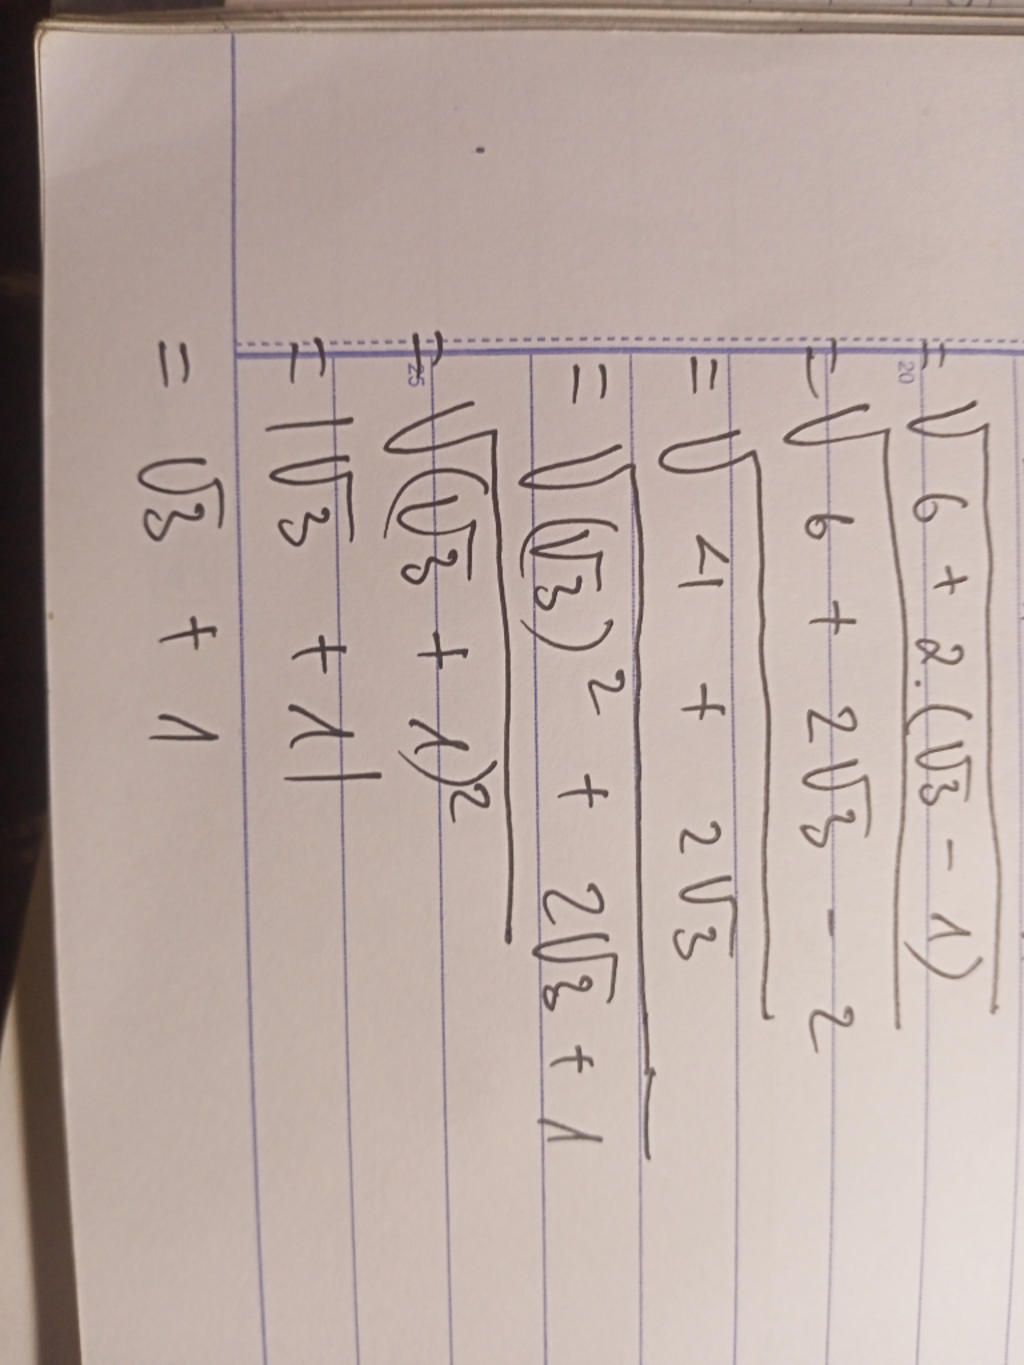 = √6 + 2.(√3 - 1)
= √6 + 2√3 - 2
= √4 + 2√3
= √(√3)² + 2√3 + 1
= √(√3 + 1)²
= |√3 + 1|
= √3 + 1
20
25